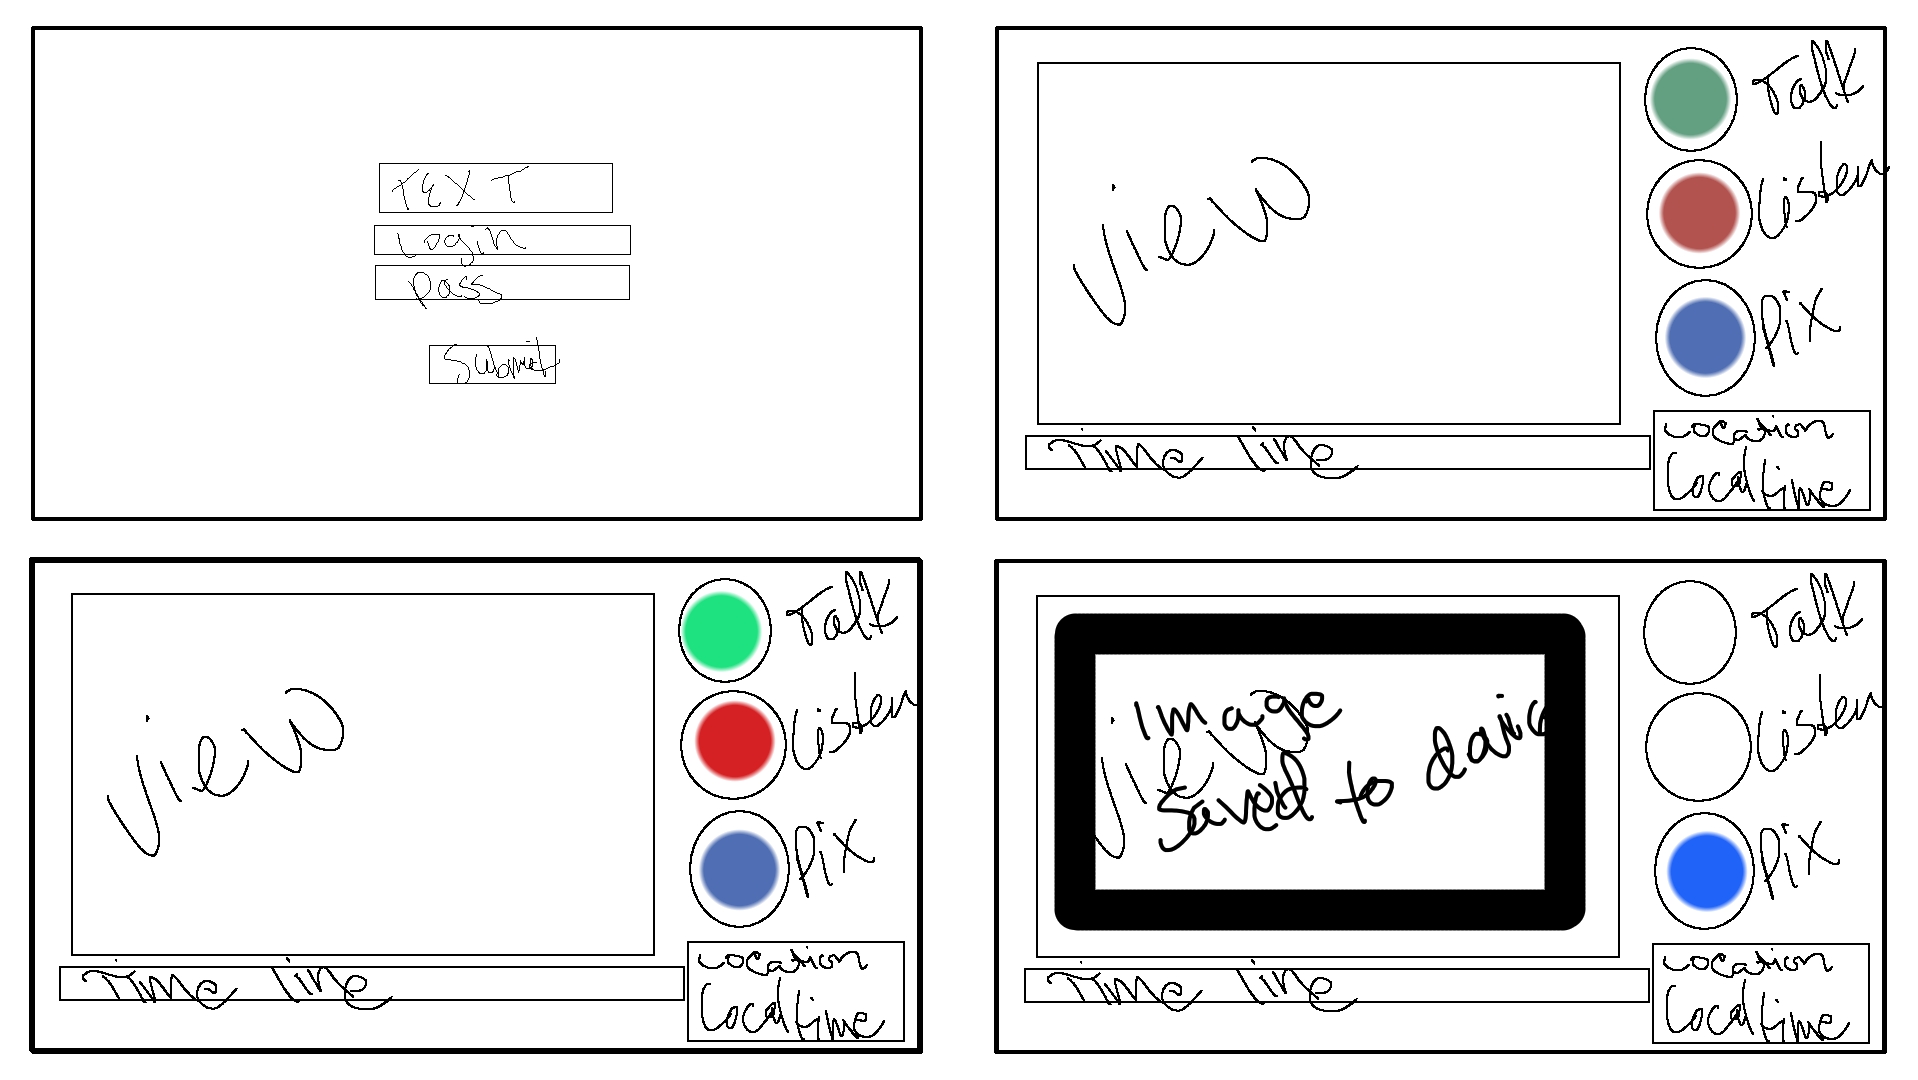 TEXT
Login
pass
Submit
View
Talk
Listen
Pix
Time line
Location
Local time
View
Talk
Listen
Pix
Time line
Location
Local time
View
Image
saved to
Talk
Listen
Pix
Time line
Location
Local time